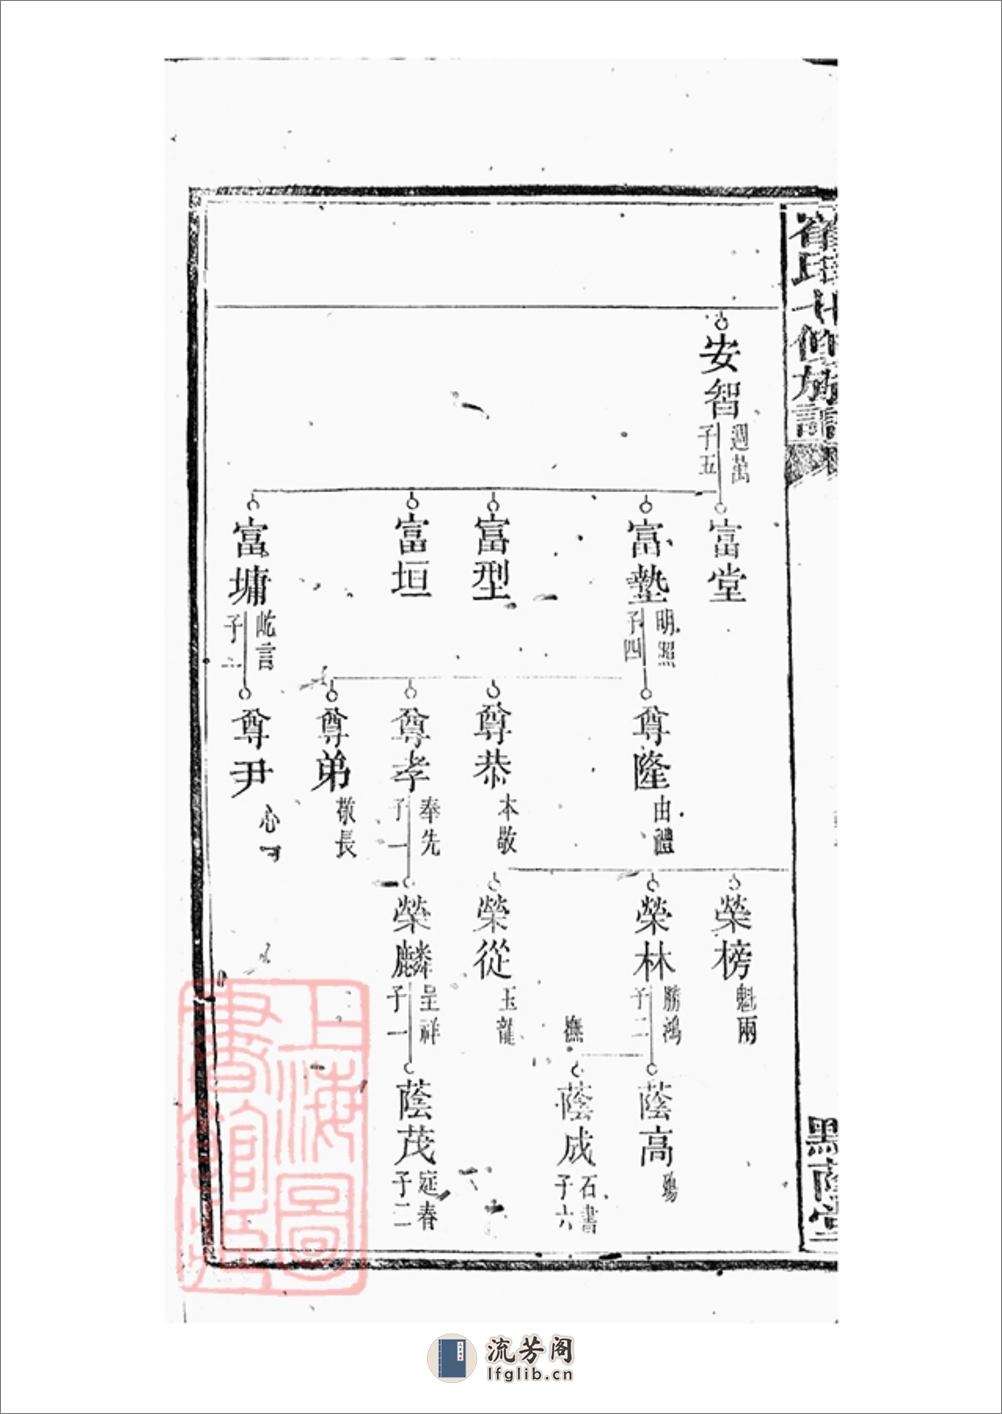 崔氏七修族譜
安智
週萬
子五
富堂
富塾
明照
子四
富型
富垣
富墉
屹言
子一
尊隆
由禮
尊恭
本敬
尊孝
奉先
子一
尊弟
敬長
尊尹
心
榮榜
魁兩
榮林
勝鴻
子二
榮從
玉龍
榮麟
呈祥
子一
蔭高
殤
撫
蔭成
石書
子六
蔭茂
延春
子二
默蔭堂
上海圖書館藏
流芳阁
lfglib.cn